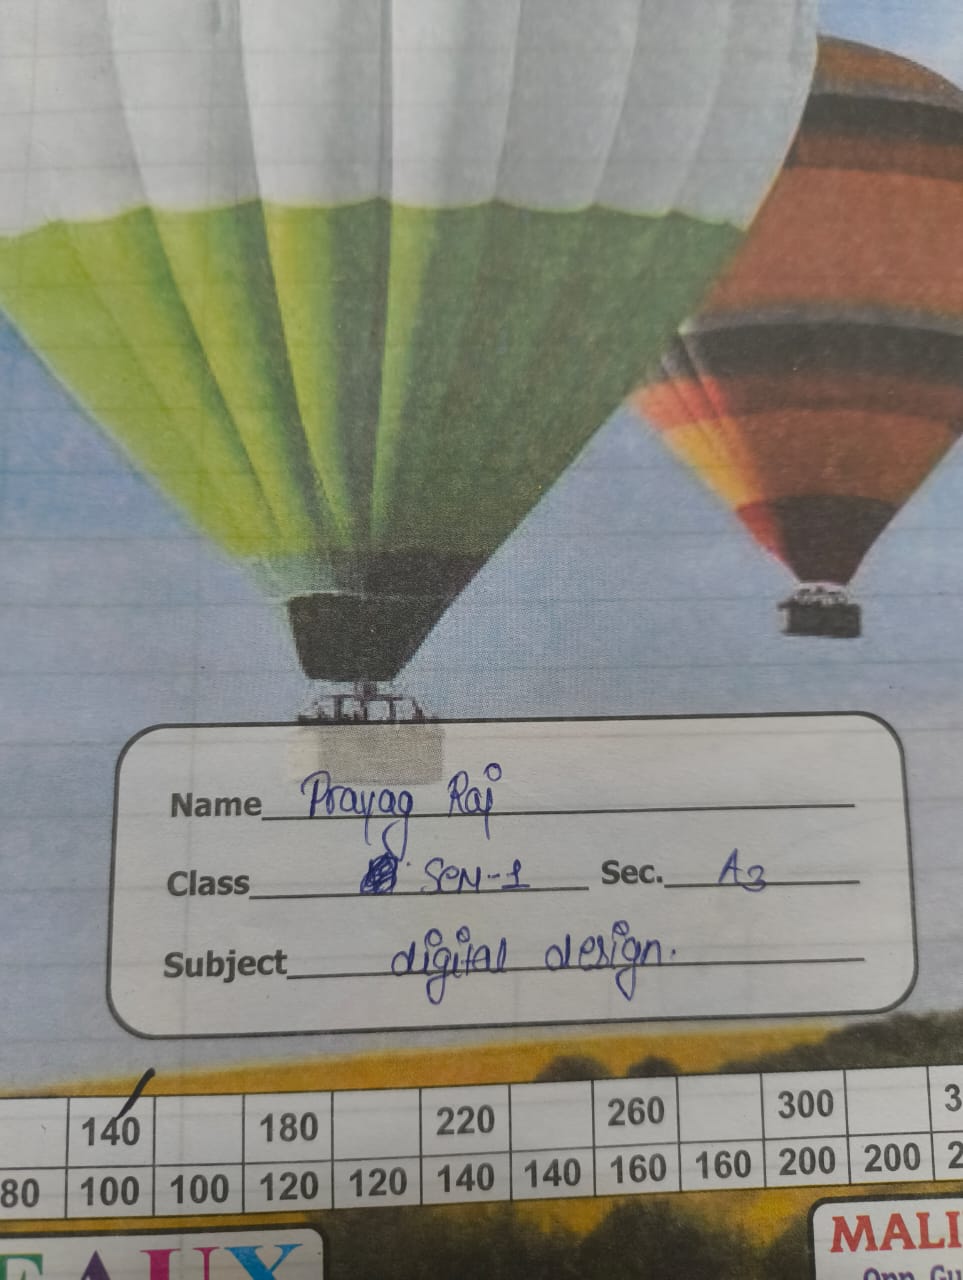 Name Prayag Raj
Class SEM-1 Sec. A3
Subject digital design.
140 180 220 260 300
80 100 100 120 120 140 140 160 160 200 200
EAUX MALI